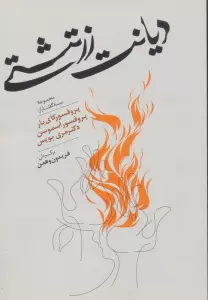 دیانت زرتشتی
مجموعه
سه گفتار از
پروفسور کای بار
پروفسور آسموسن
دکتر مری بویس
برگردان
فریدون وهمن